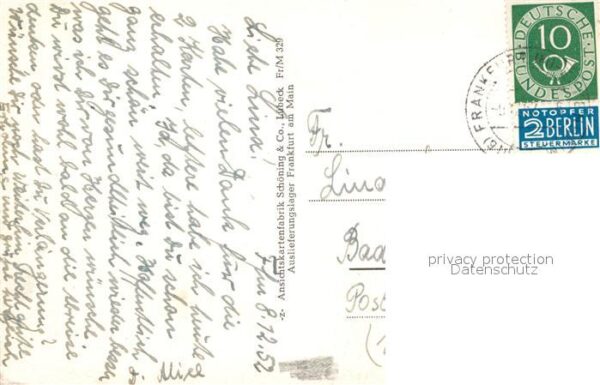 Ffm 8.12.52
Liebe Lina!
Hab vielen Dank für die
2 Karten, letztere habe ich heute
erhalten. Ja, da bist du schon
ganz schön weit weg. Hoffentlich
geht es Dir gesundheitlich wieder besser
was ich dir von Herzen wünsche.
Du wirst wohl bald an die Heimreise
denken oder hast du Verlängerung?
Mice
-z- Ansichtskartenfabrik Schöning & Co., Lübeck Fr/M 329
Auslieferungslager Frankfurt am Main
Fr.
Lina
Bad
Post
DEUTSCHE
10
BUNDESPOST
NOTOPFER
2 BERLIN
STEUERMARKE
FRANKFURT
privacy protection
Datenschutz